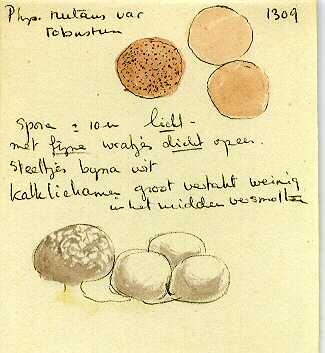 Phys. nutans var 1309
robustum
Spora ± 10 u licht -
met fijne wratjes dicht opeen.
Steeltjes byna wit
Kalklichamen groot vertakt weinig
in het midden versmolten